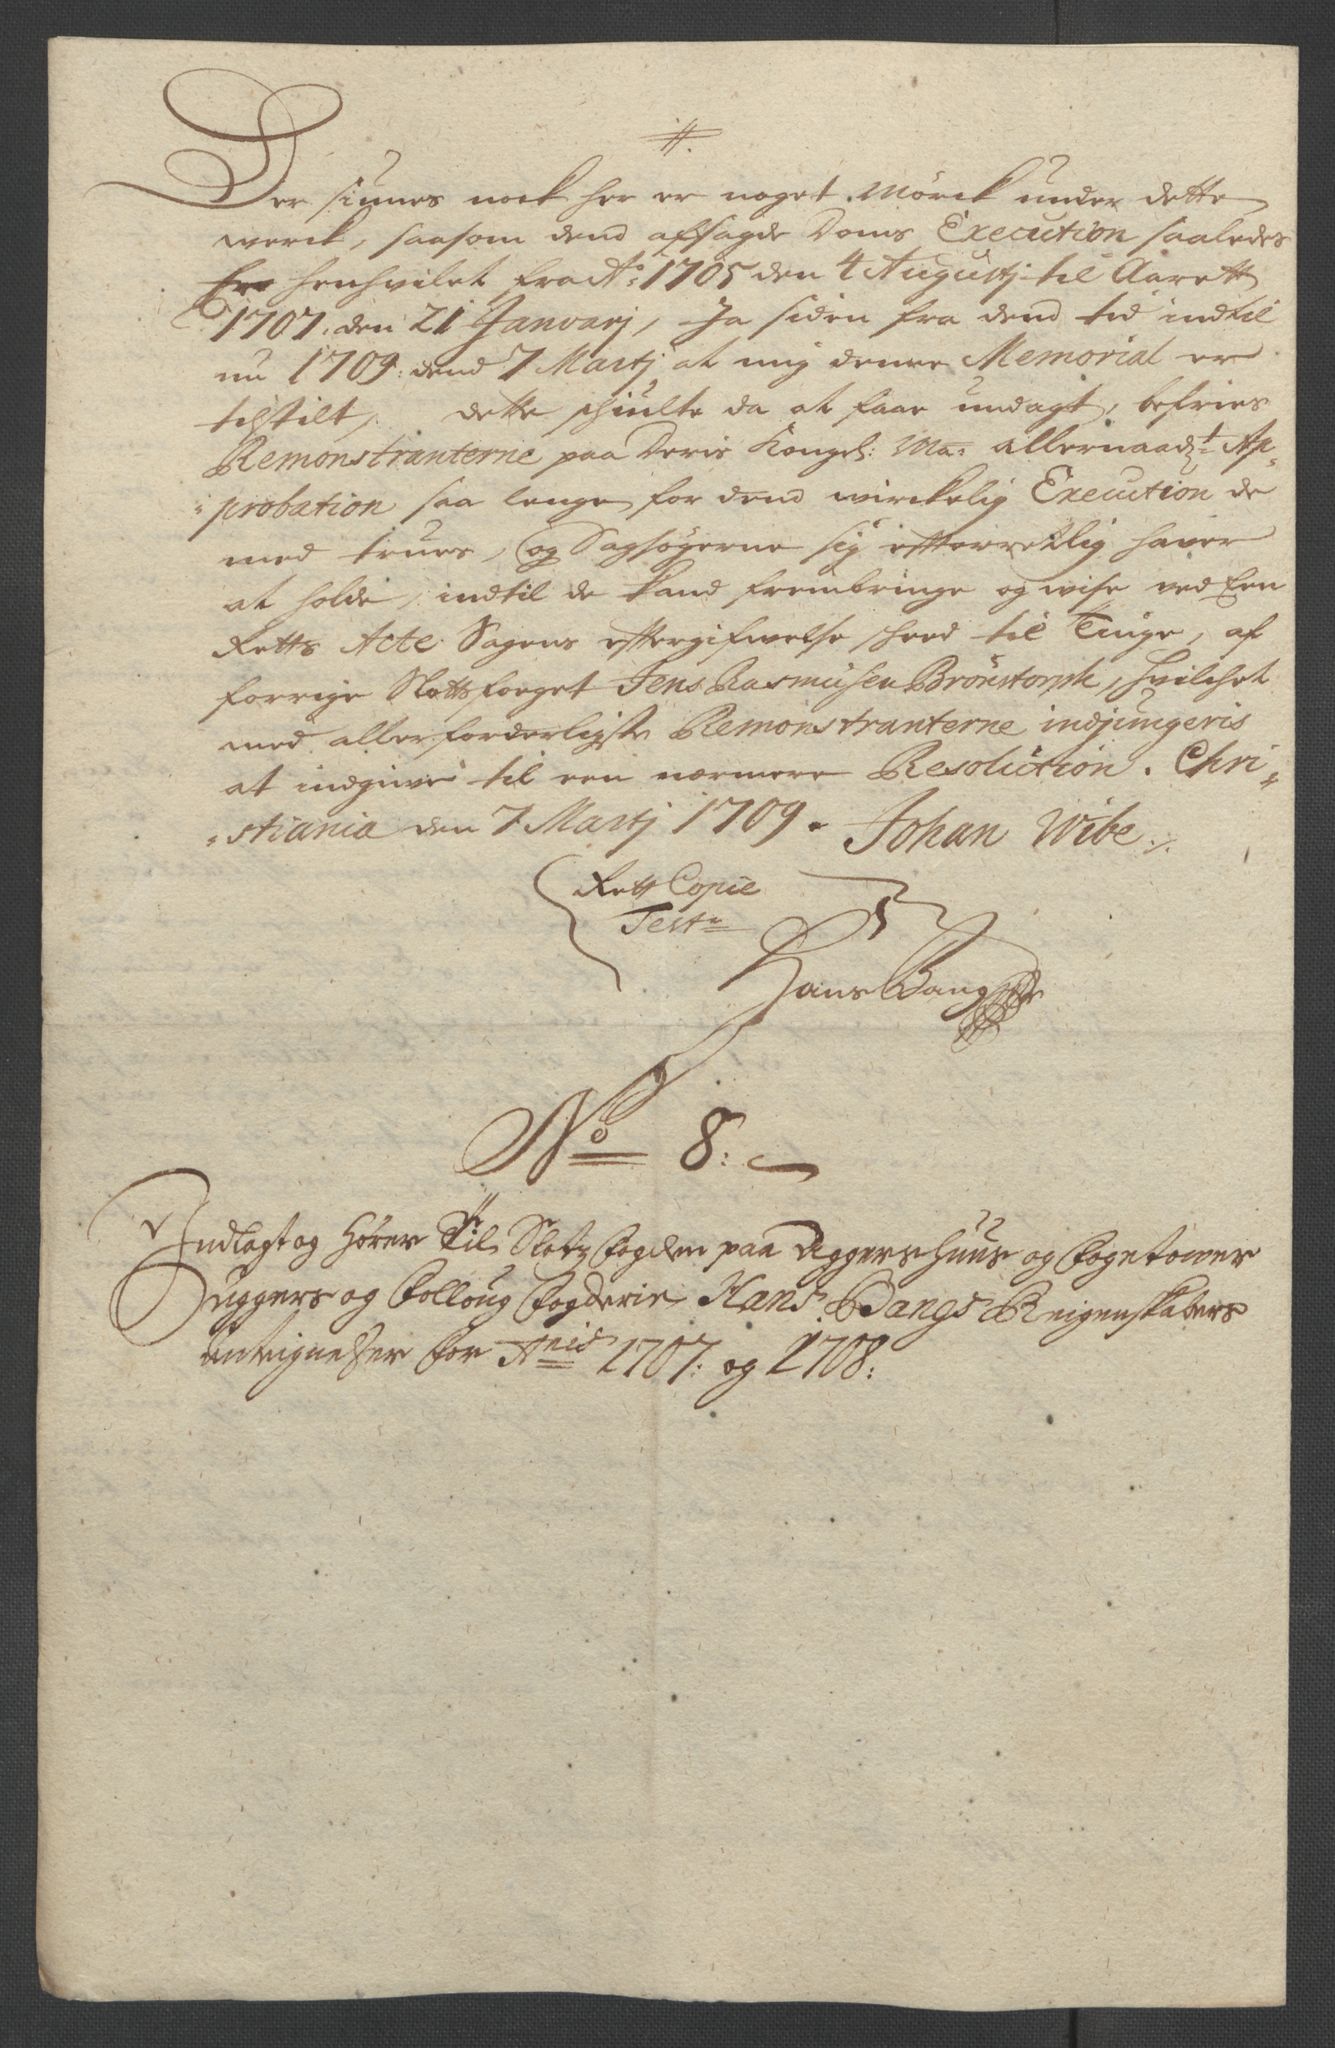 //.
Der siunes nock her er noget Mörck under dette
werck, saasom dend afsagde Doms Execution saaledes
Er henhvilet fra Ao: 1705 den 4 Augustj til Aarett
1707. den 21 Januarj, Ja siden fra dend tid indtil
nu 1709: dend 7 Martj at mig denne Memorial er
tilstilt, dette schulte da at faae undagt, befries
Remonstranterne paa Deris Kongel: Ma: allernaadt Ap-
probation saa lenge for dend wirckelig Execution de
med trues, og Sagsögerne sig efterretlig haver
at holde, indtil de kand frembringe og wise ved Een
Retts Acte Sagens eftergifwelse sked til Tinge, af
forrige Slottsfoeget Jens Rasmusen Brönstorph, hvilchet
med allerforderligste Remonstranterne indjungeris
at indgive til een nærmere Resolution. Chri-
stiania den 7 Martj 1709. Johan Wibe ./.
Rett Copie
Test:
Hans Bang
No 8:
Indlagt og hörer Til Slotz Fogden paa Aggershuus og Foget ower
Aggers og Folloug Fogderie Hans Bangs Reigenskabers
Antignelser for Anis 1707: og 1708: